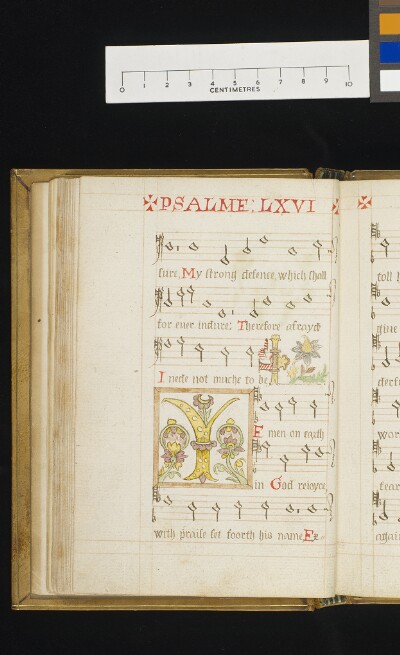 0 1 2 3 4 5 6 7 8 9 10
CENTIMETRES
✠PSALME: LXVI
sure, My strong defence, which shall
for euer indure: Therefore afrayde
I neede not muche to be
YE men on earth
in God reioyce
with praise set foorth his name Ex-
toll
giue
wor
fear
again